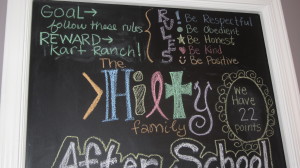 GOAL→
follow these rules
REWARD→
Kart Ranch!
RULES
Be Respectful
Be Obedient
Be Honest
Be Kind
Be Positive
The
Hilty
family
We
Have
22
points
After School